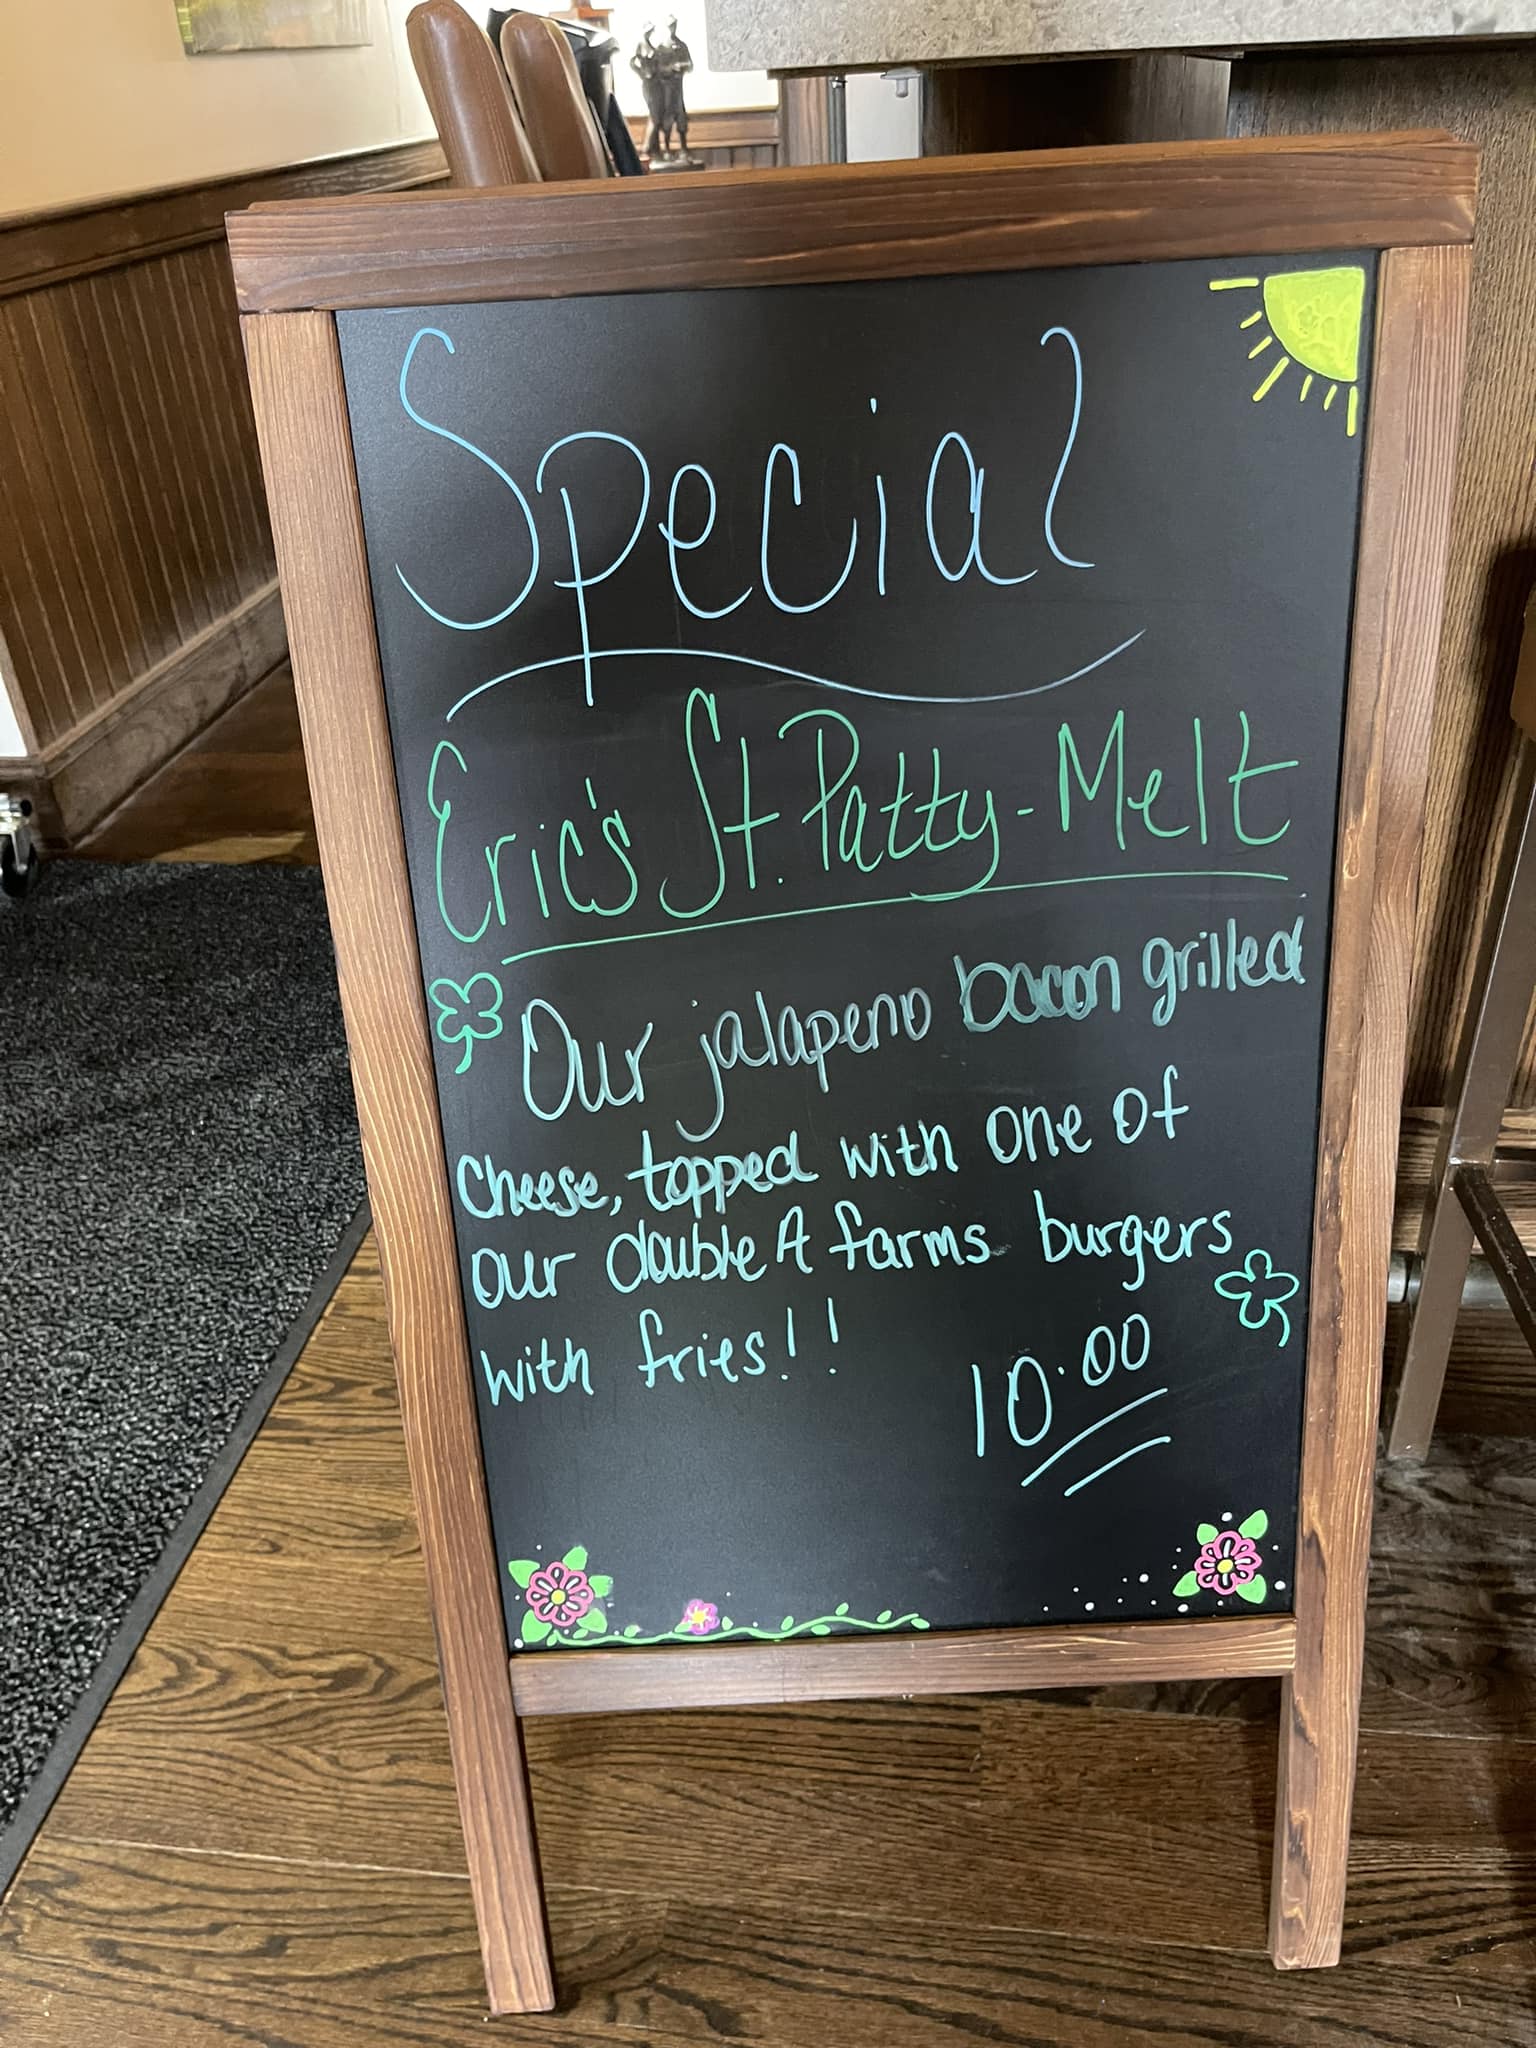 Special
Eric's St. Patty-Melt
Our jalapeno bacon grilled
Cheese, topped with one of
our double A farms burgers
with fries!!
10.00